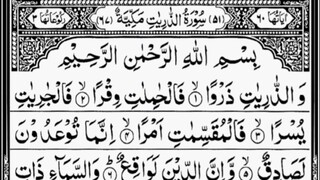 اٰیَاتُهَا ٦٠ (٥١) سُوْرَةُ الذّٰرِیٰتِ مَكِّیَّةٌ (٦٧) رُكُوْعَاتُهَا ٣
بِسْمِ اللّٰهِ الرَّحْمٰنِ الرَّحِیْمِ
وَ الذّٰرِیٰتِ ذَرْوًا ۙ﴿١﴾ فَالْحٰمِلٰتِ وِقْرًا ۙ﴿٢﴾ فَالْجٰرِیٰتِ
یُسْرًا ۙ﴿٣﴾ فَالْمُقَسِّمٰتِ اَمْرًا ۙ﴿٤﴾ اِنَّمَا تُوْعَدُوْنَ
لَصَادِقٌ ۙ﴿٥﴾ وَّ اِنَّ الدِّیْنَ لَوَاقِعٌ ؕ﴿٦﴾ وَ السَّمَآءِ ذَاتِ